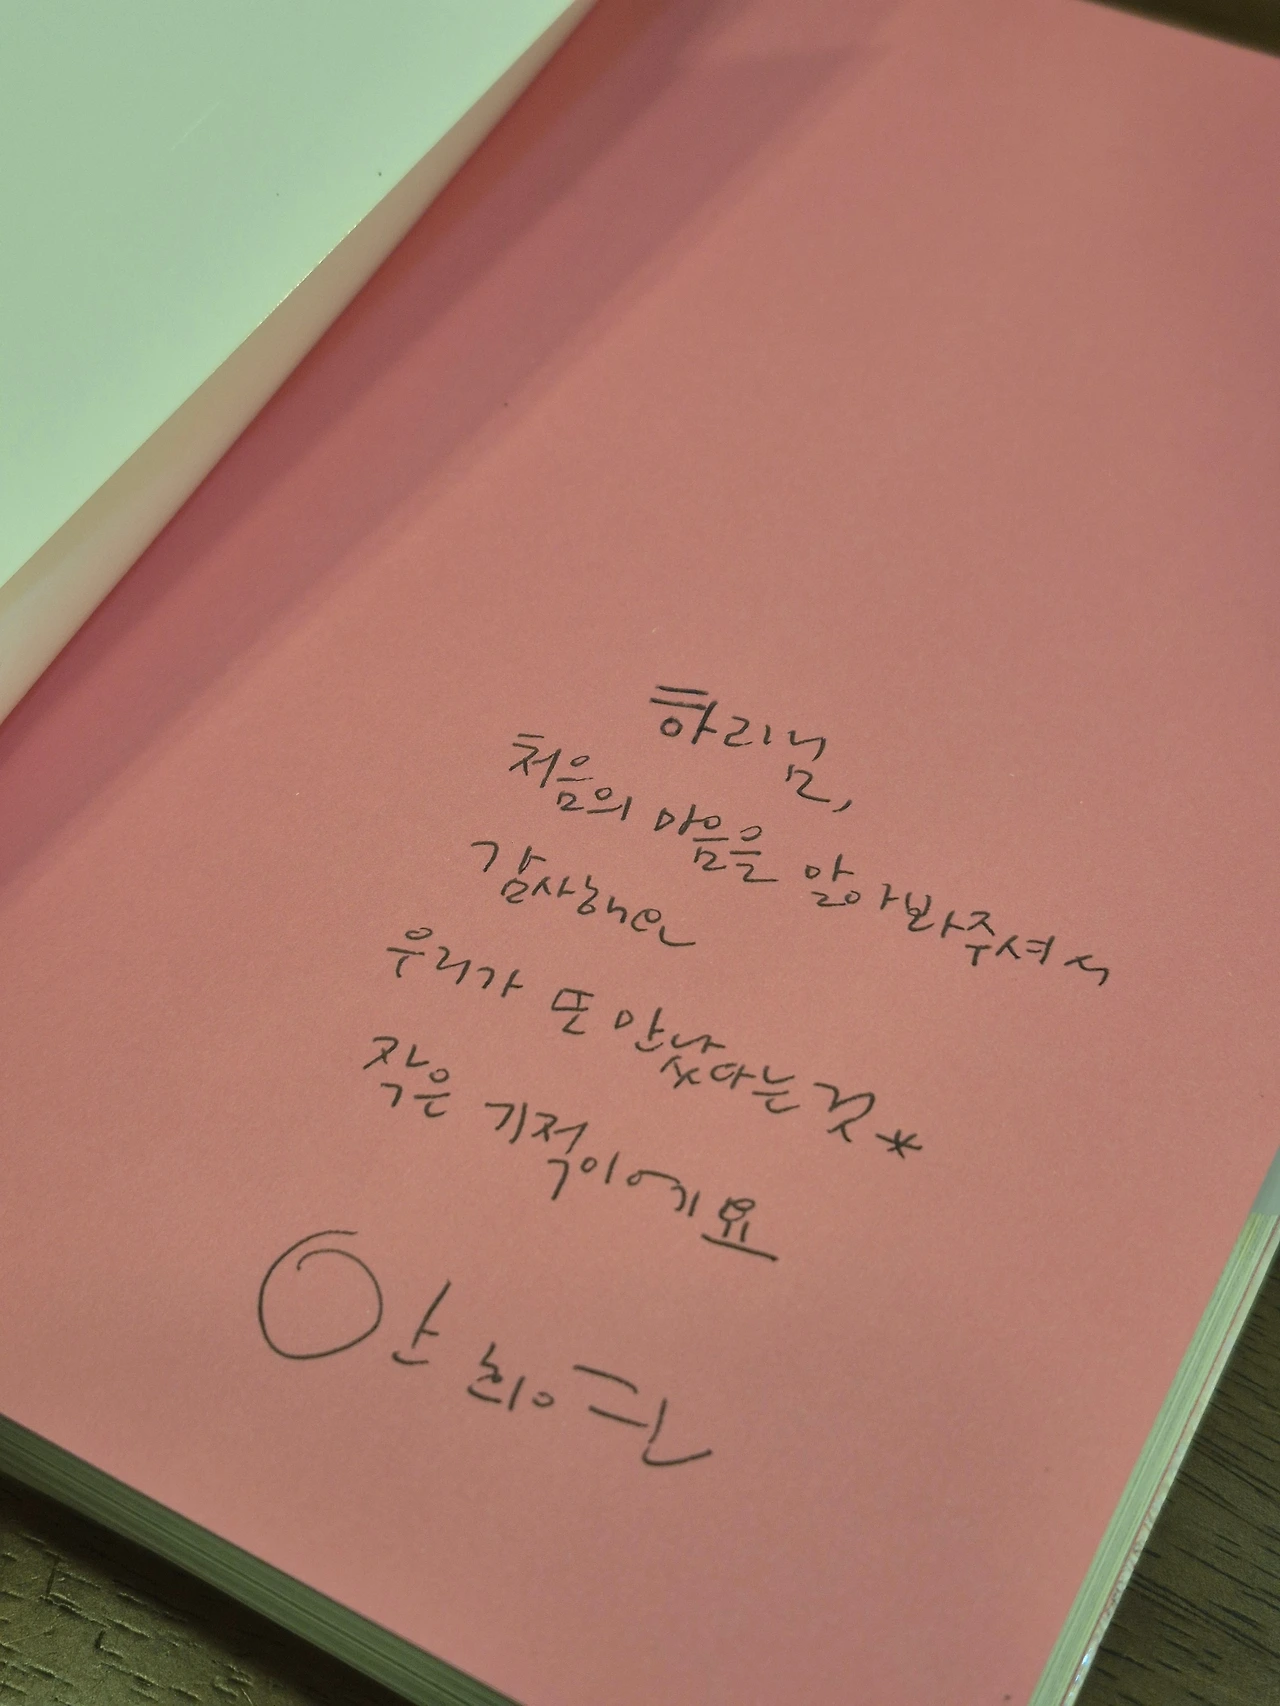 하리님,
처음의 마음을 알아봐주셔서
감사해요
우리가 또 만났다는 것*
작은 기적이에요
안희연